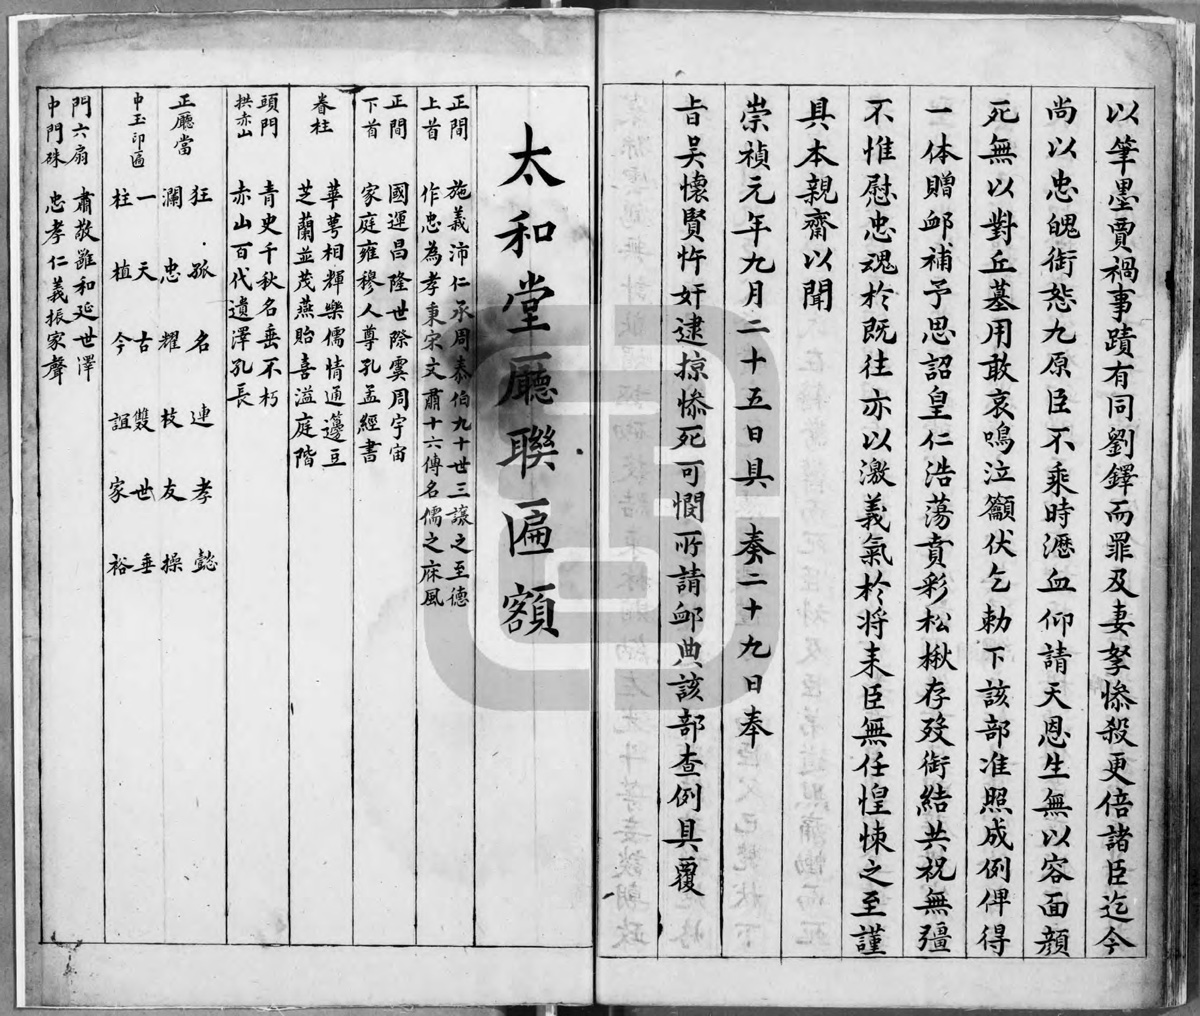 以筆墨賈禍事蹟有同劉鐸而罪及妻孥慘殺更倍諸臣迄今
尚以忠魄銜愁九原臣不乘時瀝血仰請天恩生無以容面顏
死無以對丘墓用敢哀鳴泣籲伏乞勅下該部准照成例俾得
一体贈衈補予思詔皇仁浩蕩賁彩松楸存歿銜結共祝無疆
不惟慰忠魂於既往亦以激義氣於将来臣無任惶悚之至謹
具本親齋以聞
崇禎元年九月二十五日具 奏二十九日奉
㫖吴懷賢忤奸逮掠慘死可憫所請衈典該部查例具覆
太和堂廳聯匾額
正間 施義沛仁承周泰伯九十世三讓之至德
上首 作忠為孝秉宋文肅十六傳名儒之庥風
正間 國運昌隆世際虞周宇宙
下首 家庭雍穆人尊孔孟經書
眷柱 華萼相輝樂儒情通籩豆
芝蘭並茂燕貽喜溢庭階
頭門 青史千秋名垂不朽
拱赤山 赤山百代遺澤孔長
正廳當 狂 孤名連孝懿
瀾忠耀枝友操
中玉印匾 一天古雙世垂
柱植今誼家裕
門六扇 肅敬雖和延世澤
中門硃 忠孝仁義振家聲